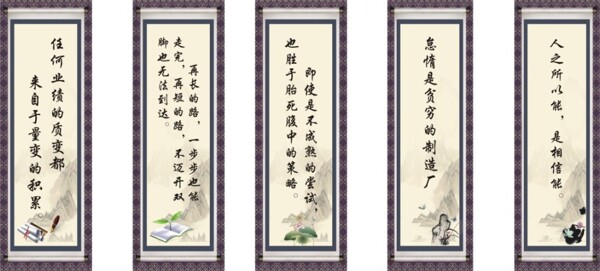 任何业绩的质变都
来自于量变的积累
再长的路，一步步也能
走完，再短的路，不迈开双
脚也无法到达。
即使是不成熟的尝试，
也胜于胎死腹中的策略。
怠惰是贫穷的制造厂
人之所以能，是相信能。